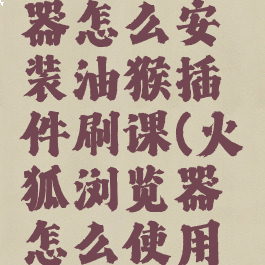 器怎么安
装油猴插
件刷课(火
狐浏览器
怎么使用